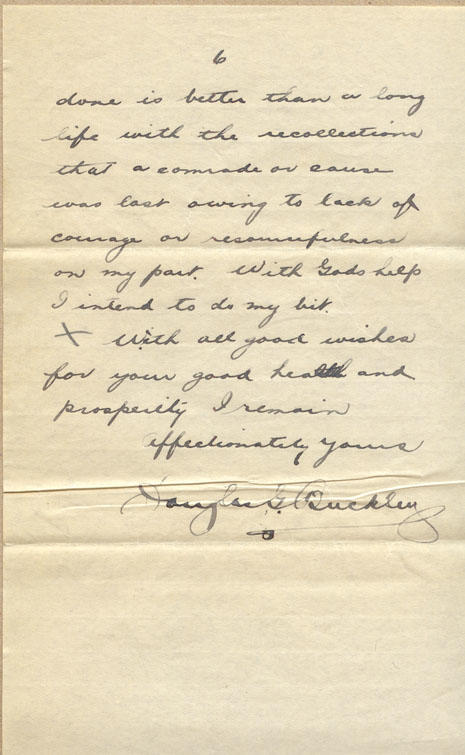 6
done is better than a long
life with the recollections
that a comrade or cause
was lost owing to lack of
courage or resourcefulness
on my part. With Gods help
I intend to do my bit.
X With all good wishes
for your good health and
prosperity I remain
Affectionately yours
Douglas G. Buckley